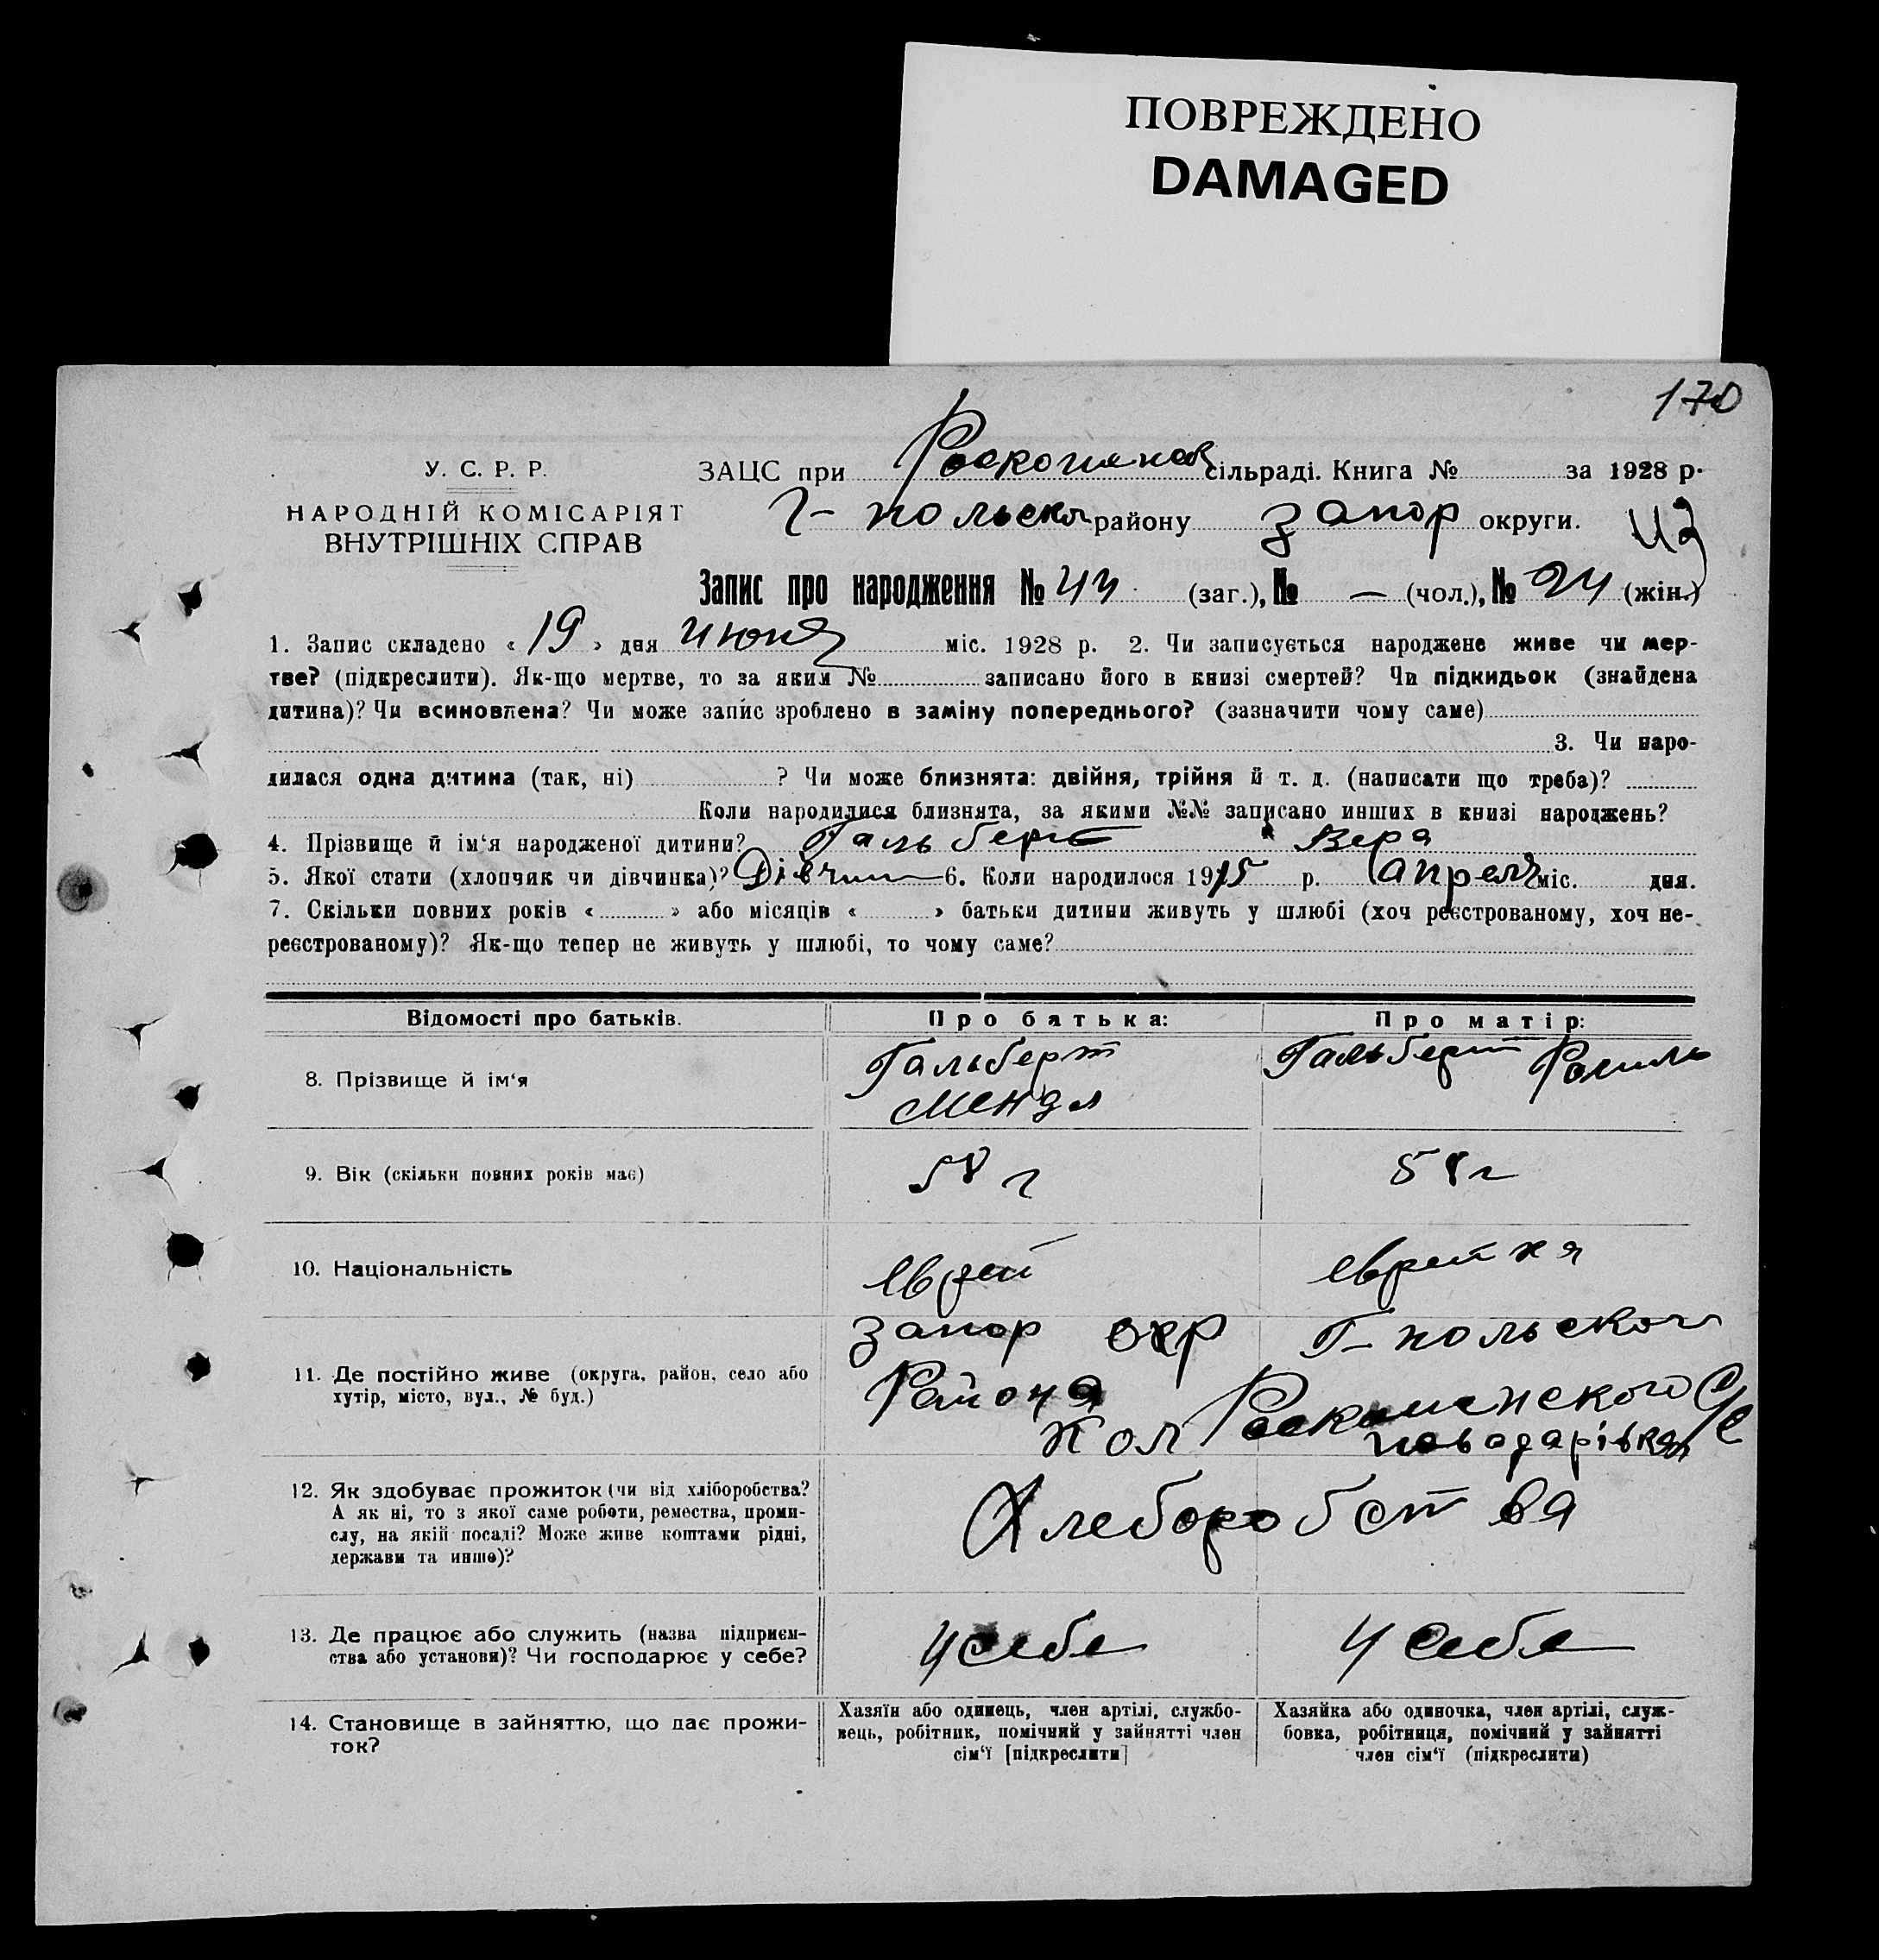 ПОВРЕЖДЕНО
DAMAGED
170
У. С. Р. Р.
НАРОДНІЙ КОМІСАРІЯТ
ВНУТРІШНІХ СПРАВ
ЗАЦС при сільраді. Книга № за 1928 р.
Г- польск району запор округи.
Запис про народження № 43 (заг.), № — (чол.), № 24 (жін.)
1. Запис складено « 19 » дня июня міс. 1928 р. 2. Чи записується народжене живе чи мер-
тве? (підкреслити). Як-що мертве, то за яким № записано його в книзі смертей? Чи підкидьок (знайдена
дитина)? Чи всиновлена? Чи може запис зроблено в заміну попереднього? (зазначити чому саме)
3. Чи наро-
дилася одна дитина (так, ні) ? Чи може близнята: двійня, трійня й т. д. (написати що треба)?
Коли народилися близнята, за якими №№ записано инших в книзі народжень?
4. Прізвище й ім‘я народженої дитини? Гальберт Вера
5. Якої стати (хлопчик чи дівчинка)? Дівчин 6. Коли народилося 1915 р. апреля міс. дня.
7. Скільки повних років « » або місяців « » батьки дитини живуть у шлюбі (хоч реєстрованому, хоч не-
реєстрованому)? Як-що тепер не живуть у шлюбі, то чому саме?
Відомості про батьків. Про батька: Про матір:
8. Прізвище й ім‘я Гальберт Мендл Гальберт Рахиль
9. Вік (скільки повних років має) 58 г 58 г
10. Національність Еврей еврейка
11. Де постійно живе (округа, район, село або
хутір, місто, вул., № буд.)
запор окр Г- польского
Района
Кол новодарівка
12. Як здобуває прожиток (чи від хліборобства?
А як ні, то з якої саме роботи, ремества, проми-
слу, на якій посаді? Може живе коштами рідні,
держави та инше)?
Хлеборобства
13. Де працює або служить (назва підприєм-
ства або установи)? Чи господарює у себе?
у себе у себе
14. Становище в зайняттю, що дає прожи-
ток?
Хазяїн або одинець, член артілі, службо-
вець, робітник, помічний у зайнятті член
сім‘ї [підкреслити]
Хазяйка або одиночка, член артілі, служ-
бовка, робітниця, помічний у зайнятті
член сім‘ї (підкреслити)